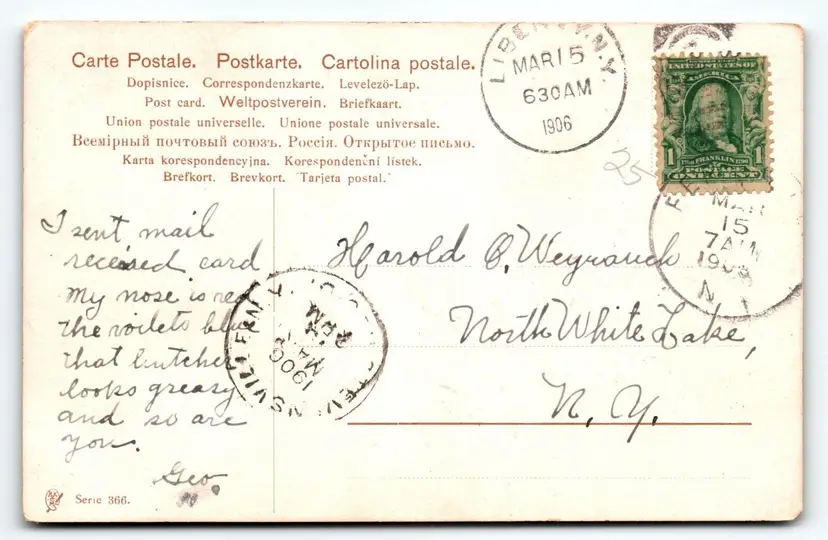 Carte Postale. Postkarte. Cartolina postale.
Dopisnice. Correspondenzkarte. Levelező-Lap.
Post card. Weltpostverein. Briefkaart.
Union postale universelle. Unione postale universale.
Всемірный почтовый союзъ. Россія. Открытое письмо.
Karta korespondencyjna. Korespondenční lístek.
Brefkort. Brevkort. Tarjeta postal.
LIBERTY, N.Y.
MAR 15
630AM
1906
UNITED STATES OF
AMERICA
FRANKLIN
1 1
POSTAGE
ONE CENT
25
MAR
15
7AM
190
N.Y.
I sent mail
received card
my nose is red
the voilets blue
that butcher
looks greasy
and so are
you.
Geo
Harold O. Weyrauch
North White Lake,
N. Y.
MAR
1906
Serie 366.